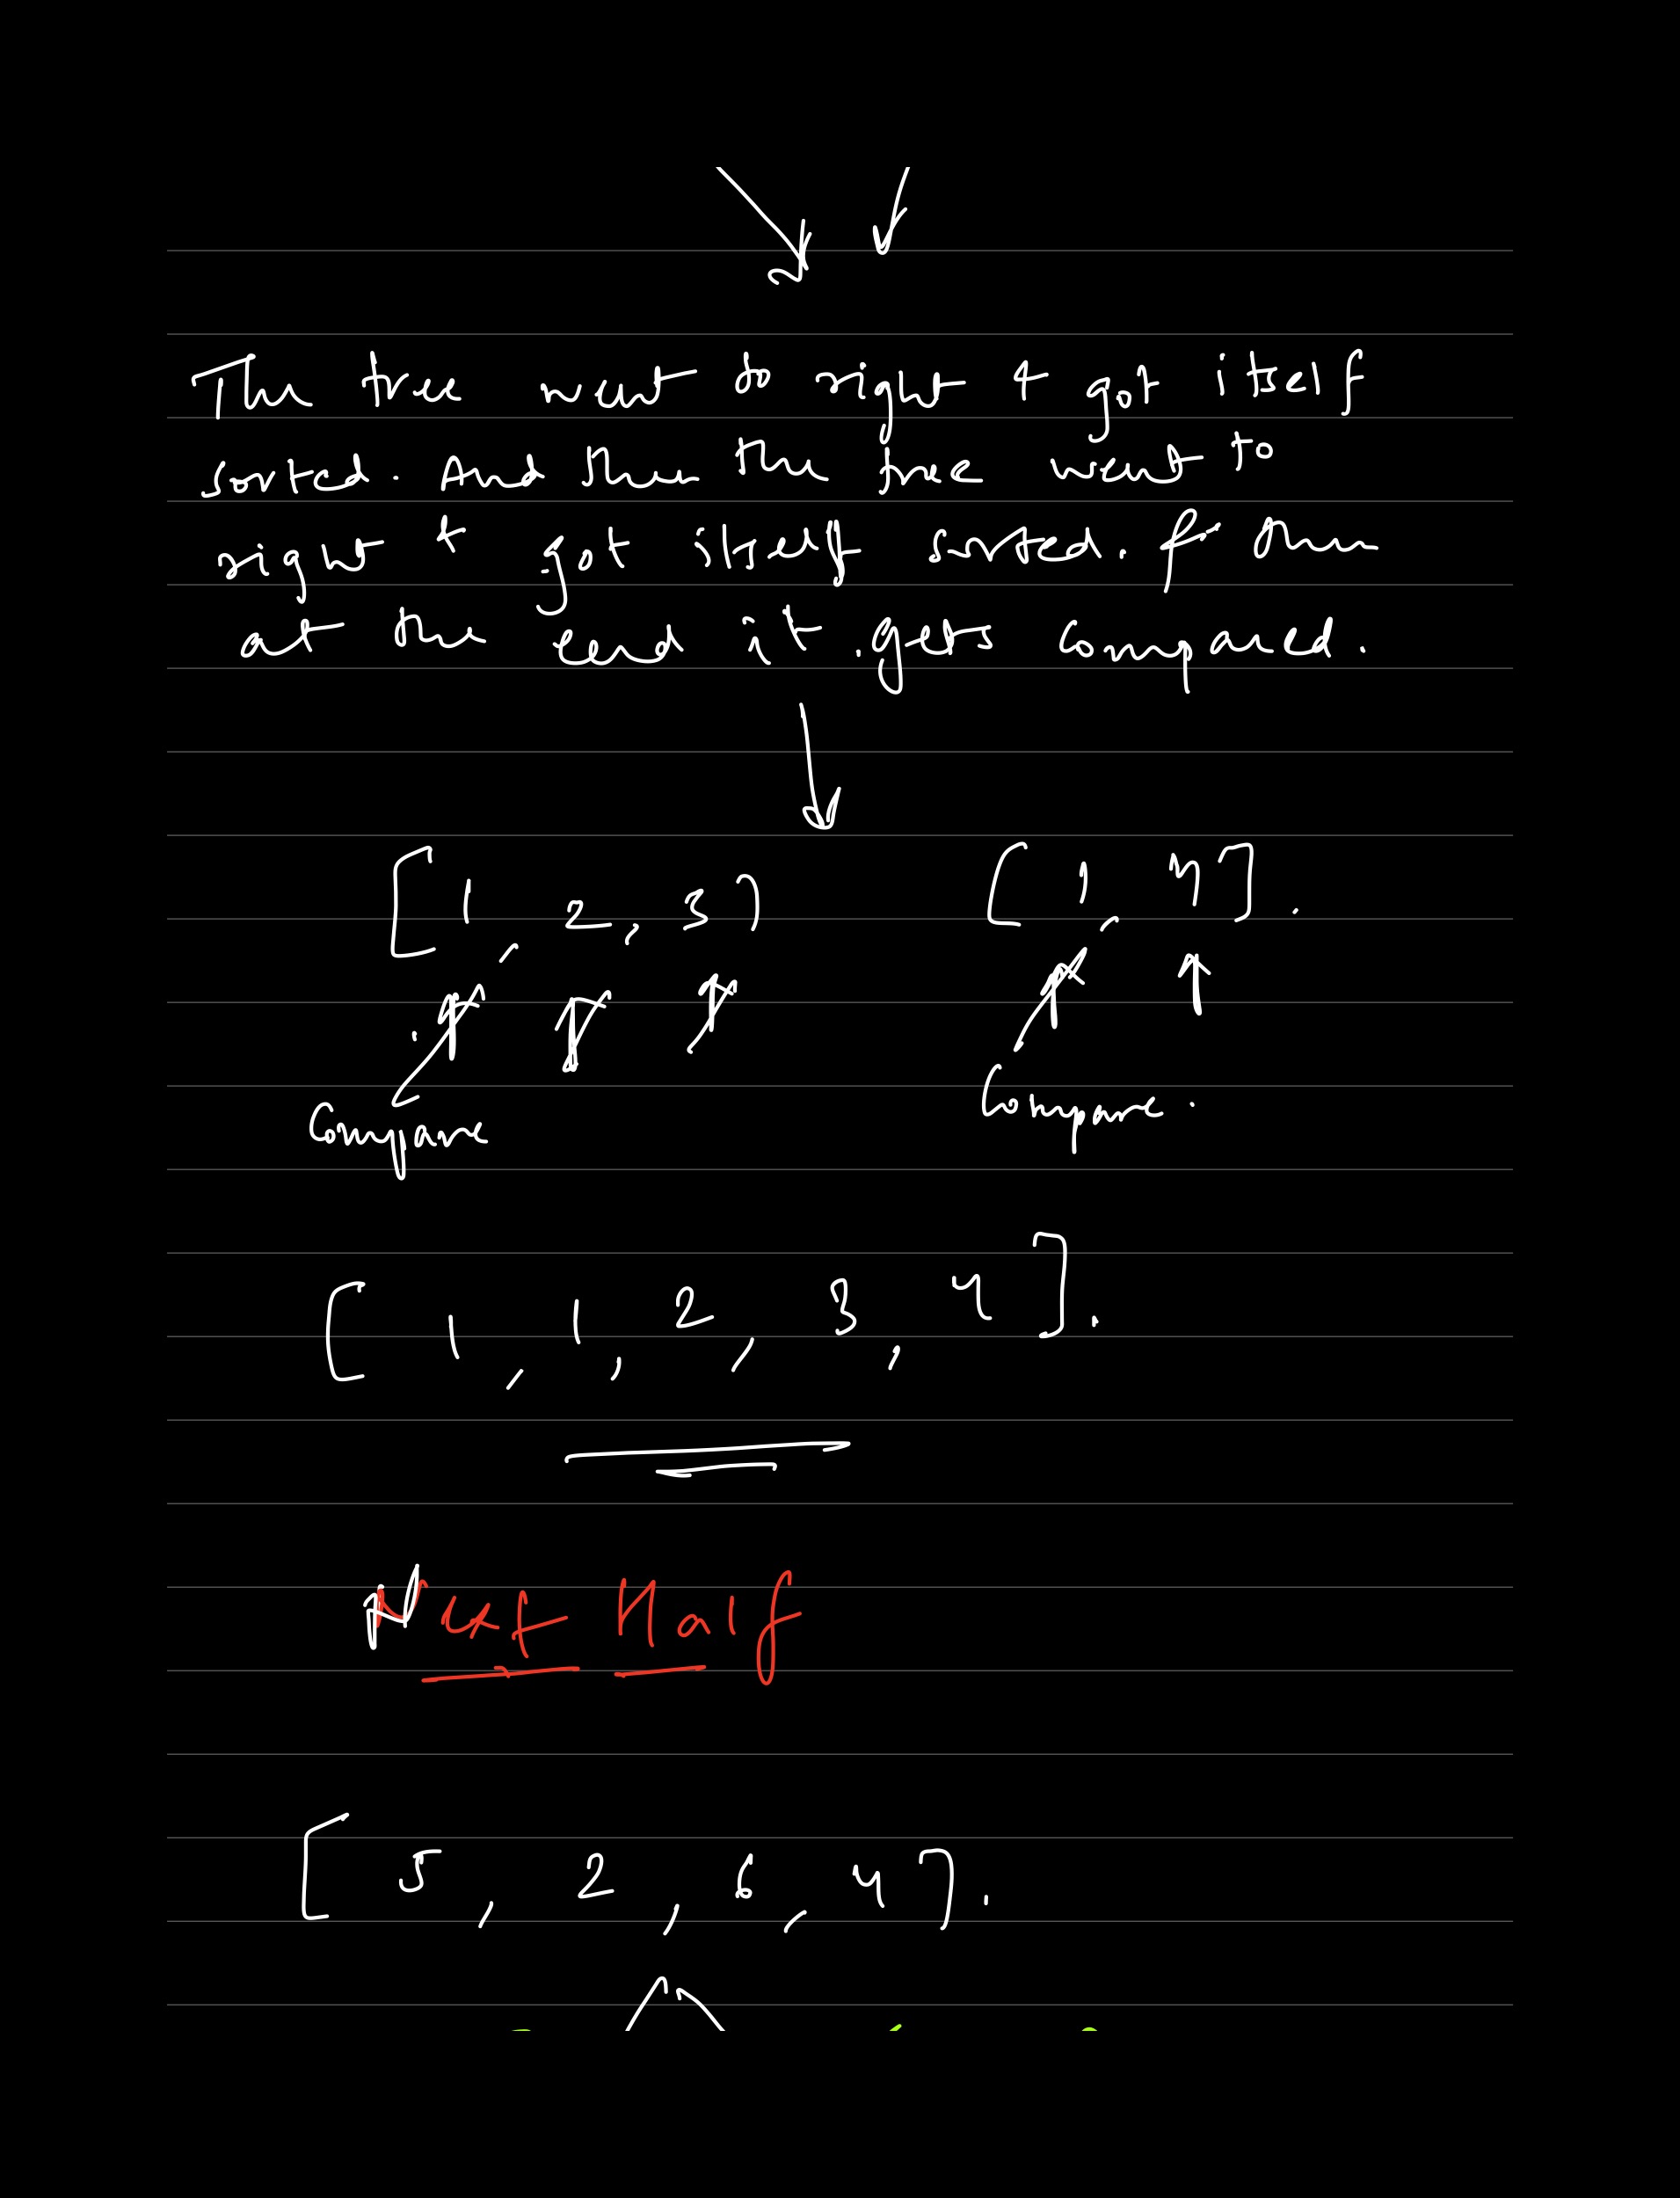 The tree went to right & got itself
sorted. And then the tree went to
right & got itself sorted. & then
at the end it gets compared.
[1, 2, 3] [1, 4].
Compare Compare.
[1, 1, 2, 3, 4].
Next Half
[5, 2, 6, 4].